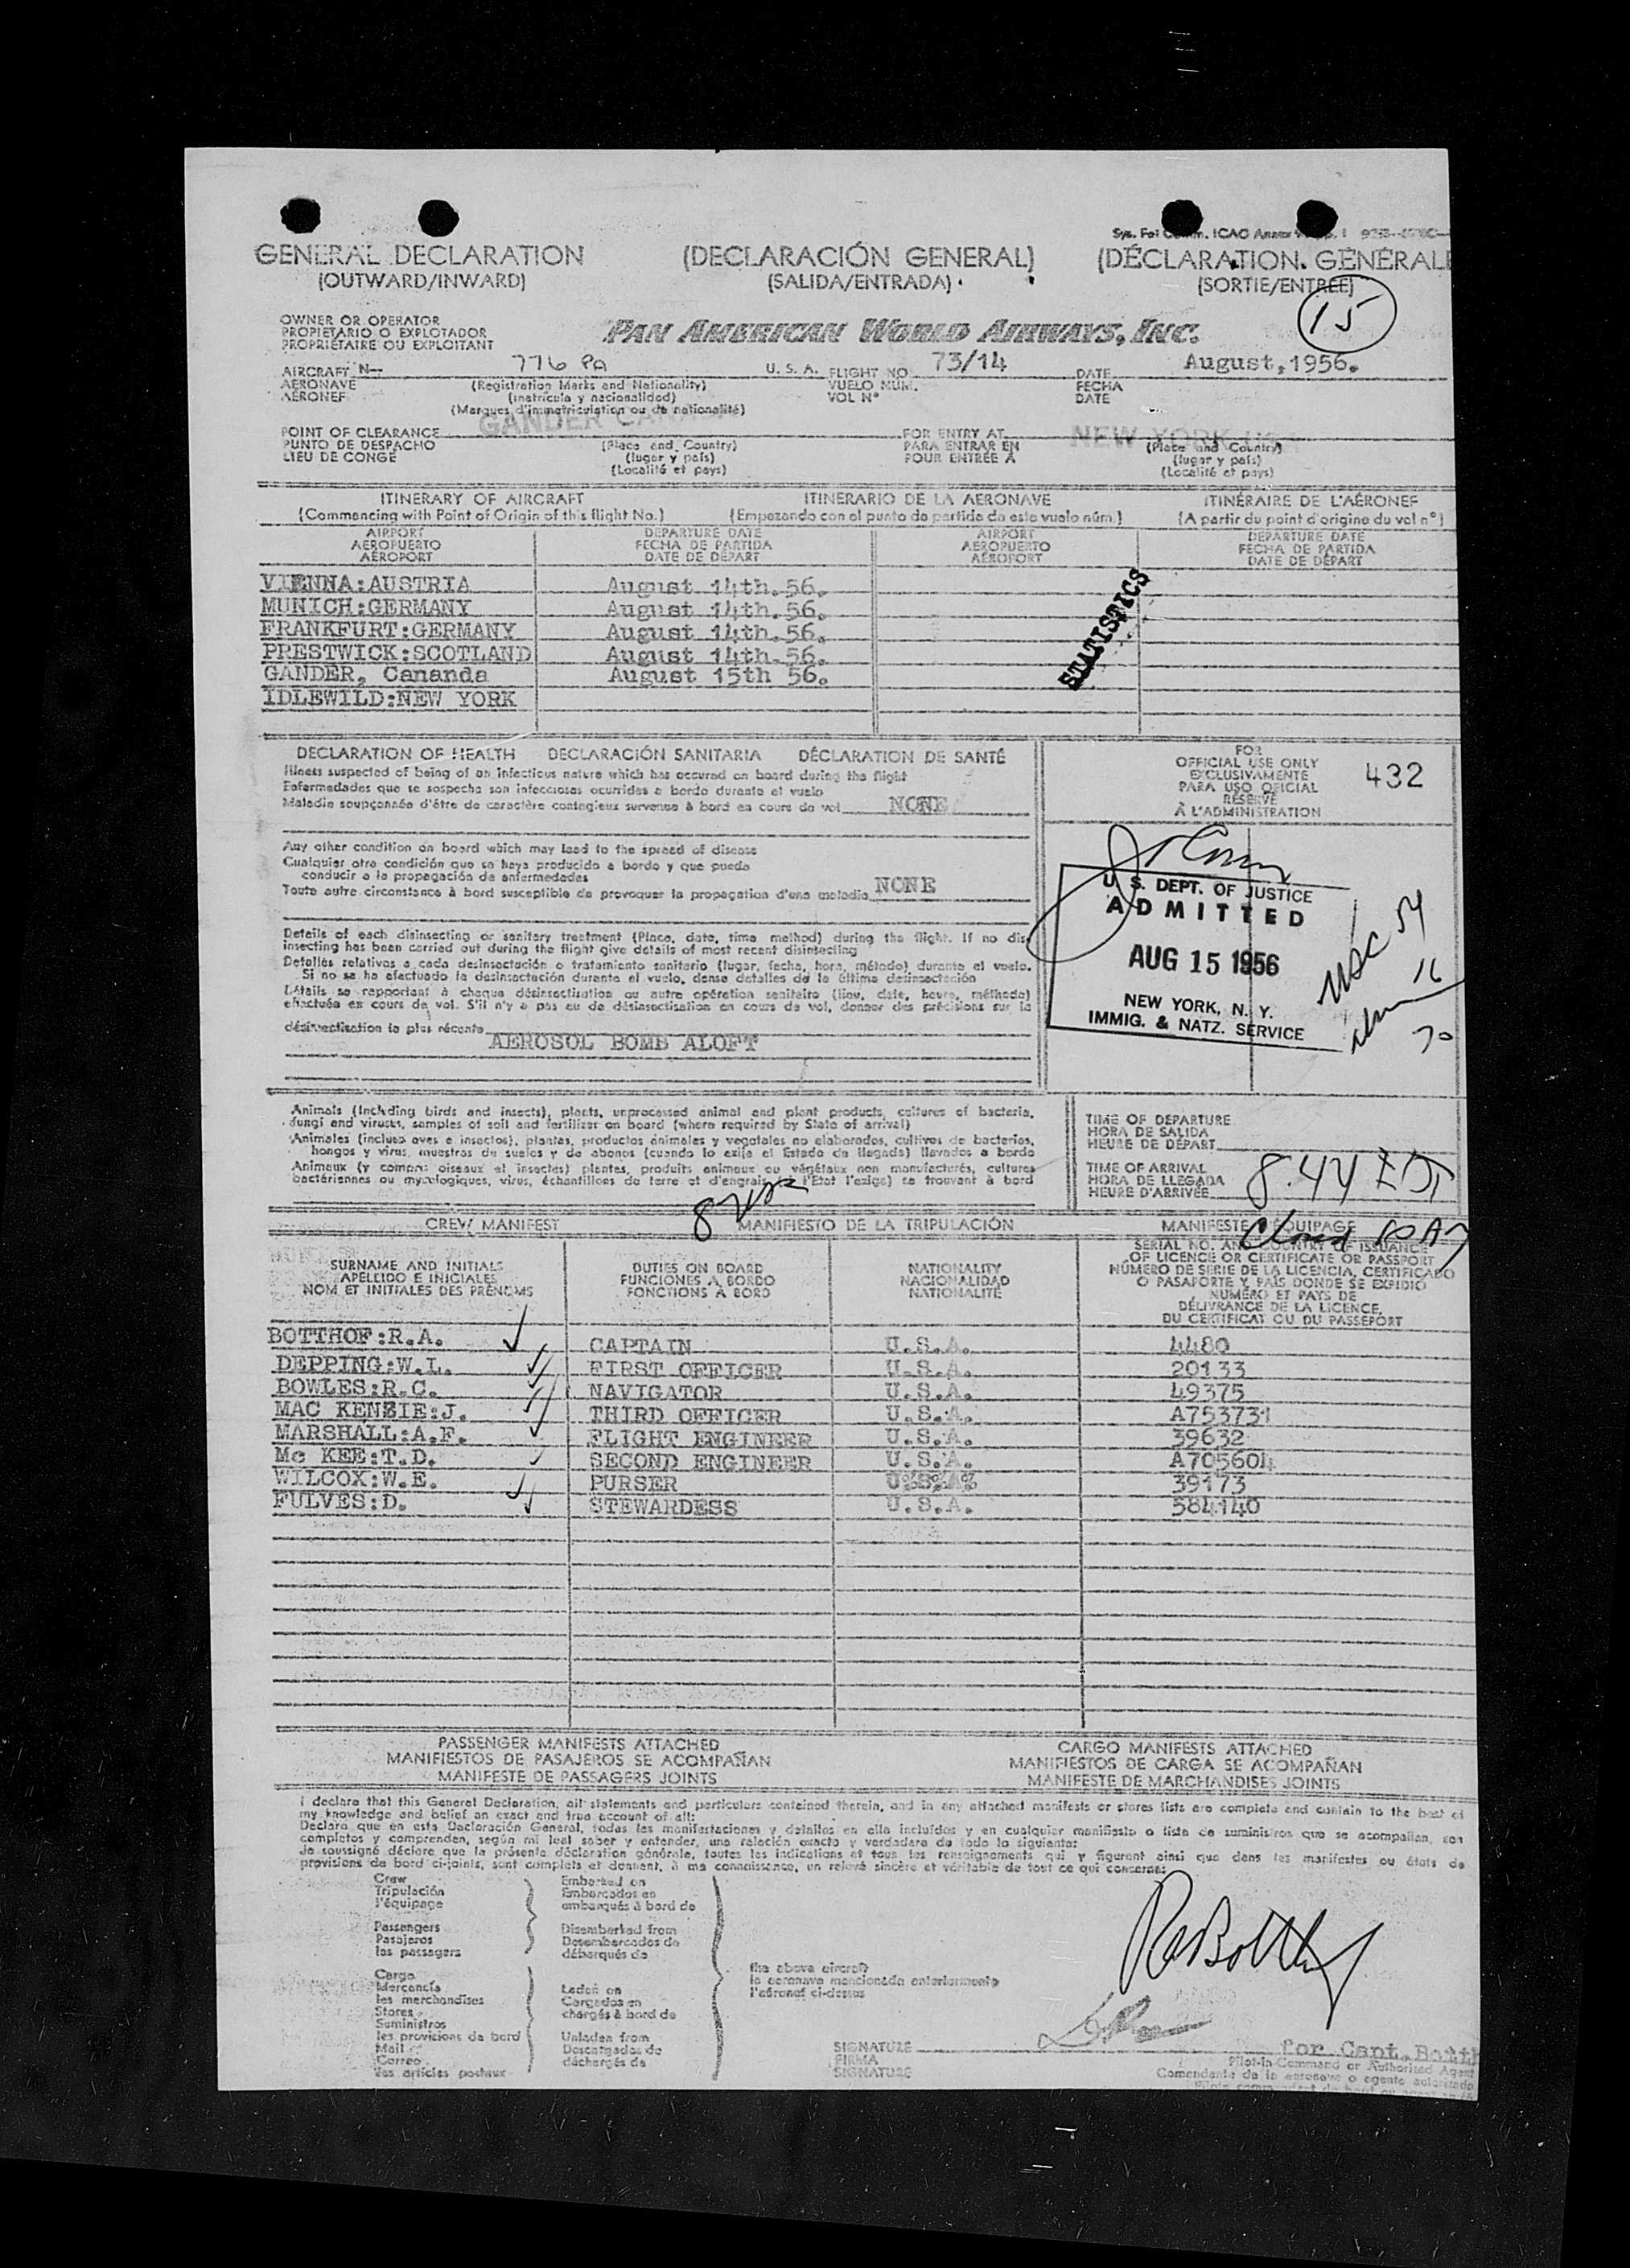 Sys. Fol Comm. ICAO Annex
GENERAL DECLARATION (DECLARACIÓN GENERAL) (DÉCLARATION GÉNÉRALE
(OUTWARD/INWARD) (SALIDA/ENTRADA) (SORTIE/ENTRÉE)
15
OWNER OR OPERATOR
PROPIETARIO O EXPLOTADOR
PROPRIÉTAIRE OU EXPLOITANT
PAN AMERICAN WORLD AIRWAYS, INC.
AIRCRAFT N— 776 PA U. S. A. FLIGHT NO. 73/14 DATE August, 1956.
AERONAVE (Registration Marks and Nationality) VUELO NÚM. FECHA
AÉRONEF (matrícula y nacionalidad) VOL Nº DATE
(Marques d'immatriculation ou de nationalité)
POINT OF CLEARANCE GANDER CANADA FOR ENTRY AT NEW YORK
PUNTO DE DESPACHO (Place and Country) PARA ENTRAR EN (Place and Country)
LIEU DE CONGÉ (lugar y país) POUR ENTRÉE À (lugar y país)
(Localité et pays) (Localité et pays)
ITINERARY OF AIRCRAFT ITINERARIO DE LA AERONAVE ITINÉRAIRE DE L'AÉRONEF
(Commencing with Point of Origin of this flight No.) (Empezando con el punto de partida de este vuelo núm.) (A partir du point d'origine du vol nº)
AIRPORT DEPARTURE DATE AIRPORT DEPARTURE DATE
AEROPUERTO FECHA DE PARTIDA AEROPUERTO FECHA DE PARTIDA
AÉROPORT DATE DE DÉPART AÉROPORT DATE DE DÉPART
VIENNA:AUSTRIA August 14th.56.
MUNICH:GERMANY August 14th.56.
FRANKFURT:GERMANY August 14th.56.
PRESTWICK:SCOTLAND August 14th.56.
GANDER, Cananda August 15th 56.
IDLEWILD:NEW YORK
STATISTICS
DECLARATION OF HEALTH DECLARACIÓN SANITARIA DÉCLARATION DE SANTÉ
Illness suspected of being of an infectious nature which has occured on board during the flight
Enfermedades que se sospecha son infecciosas ocurridas a bordo durante el vuelo
Maladie soupçonnée d'être de caractère contagieux survenue à bord en cours de vol NONE
Any other condition on board which may lead to the spread of disease
Cualquier otra condición que se haya producido a bordo y que pueda
conducir a la propagación de enfermedades
Toute autre circonstance à bord susceptible de provoquer la propagation d'une maladie NONE
Details of each disinsecting or sanitary treatment (Place, date, time method) during the flight. If no dis-
insecting has been carried out during the flight give details of most recent disinsecting
Detalles relativos a cada desinsectación o tratamiento sanitario (lugar, fecha, hora, método) durante el vuelo.
Si no se ha efectuado la desinsectación durante el vuelo, dense detalles de la última desinsectación
Détails se rapportant à chaque désinsectisation ou autre opération sanitaire (lieu, date, heure, méthode)
effectuée en cours de vol. S'il n'y a pas eu de désinsectisation en cours de vol, donner des précisions sur la
désinsectisation la plus récente AEROSOL BOMB ALOFT
FOR
OFFICIAL USE ONLY
EXCLUSIVAMENTE
PARA USO OFICIAL
RÉSERVÉ
À L'ADMINISTRATION
432
U. S. DEPT. OF JUSTICE
ADMITTED
AUG 15 1956
NEW YORK, N. Y.
IMMIG. & NATZ. SERVICE
USC 54
16
70
Animals (Including birds and insects), plants, unprocessed animal and plant products, cultures of bacteria,
fungi and viruses, samples of soil and fertilizer on board (where required by State of arrival)
Animales (incluso aves e insectos), plantas, productos animales y vegetales no elaborados, cultivos de bacterias,
hongos y virus, muestras de suelos y de abonos (cuando lo exija el Estado de llegada) llevados a bordo
Animaux (y compris oiseaux et insectes) plantes, produits animaux ou végétaux non manufacturés, cultures
bactériennes ou mycologiques, virus, échantillons de terre et d'engrais l'Etat l'exige) se trouvant à bord
TIME OF DEPARTURE
HORA DE SALIDA
HEURE DE DÉPART
TIME OF ARRIVAL
HORA DE LLEGADA
HEURE D'ARRIVÉE
8.44 EDT
CREW MANIFEST MANIFIESTO DE LA TRIPULACIÓN MANIFESTE D'ÉQUIPAGE
SURNAME AND INITIALS
APELLIDO E INICIALES
NOM ET INITIALES DES PRÉNOMS
DUTIES ON BOARD
FUNCIONES A BORDO
FONCTIONS À BORD
NATIONALITY
NACIONALIDAD
NATIONALITÉ
SERIAL NO. AND COUNTRY OF ISSUANCE
OF LICENCE OR CERTIFICATE OR PASSPORT
NÚMERO DE SERIE DE LA LICENCIA, CERTIFICADO
O PASAPORTE Y PAÍS DONDE SE EXPIDIÓ
NUMÉRO ET PAYS DE
DÉLIVRANCE DE LA LICENCE,
DU CERTIFICAT OU DU PASSEPORT
BOTTHOF:R.A. CAPTAIN U.S.A. 4480
DEPPING:W.L. FIRST OFFICER U.S.A. 20133
BOWLES:R.C. NAVIGATOR U.S.A. 49375
MAC KENZIE:J. THIRD OFFICER U.S.A. A753731
MARSHALL:A.F. FLIGHT ENGINEER U.S.A. 39632
Mc KEE:T.D. SECOND ENGINEER U.S.A. A705604
WILCOX:W.E. PURSER U.S.A. 39173
FULVES:D. STEWARDESS U.S.A. 584140
PASSENGER MANIFESTS ATTACHED CARGO MANIFESTS ATTACHED
MANIFIESTOS DE PASAJEROS SE ACOMPAÑAN MANIFIESTOS DE CARGA SE ACOMPAÑAN
MANIFESTE DE PASSAGERS JOINTS MANIFESTE DE MARCHANDISES JOINTS
I declare that this General Declaration, all statements and particulars contained therein, and in any attached manifests or stores lists are complete and contain to the best of
my knowledge and belief an exact and true account of all:
Declaro que en esta Declaración General, todas las manifestaciones y detalles en ella incluídos y en cualquier manifiesto o lista de suministros que se acompañan, son
completos y comprenden, según mi leal saber y entender, una relación exacta y verdadera de todo lo siguiente:
Je soussigné déclare que la présente déclaration générale, toutes les indications et tous les renseignements qui y figurent ainsi que dans les manifestes ou états de
provisions de bord ci-joints, sont complets et donnent, à ma connaissance, un relevé sincère et véritable de tout ce qui concerne:
Crew
Tripulación
l'équipage
Passengers
Pasajeros
les passagers
Cargo
Mercancía
les marchandises
Stores
Suministros
les provisions de bord
Mail
Correo
les articles postaux
Embarked on
Embarcados en
embarqués à bord de
Disembarked from
Desembarcados de
débarqués de
Laden on
Cargados en
chargés à bord de
Unladen from
Descargados de
déchargés de
the above aircraft
la aeronave mencionada anteriormente
l'aéronef ci-dessus
SIGNATURE
FIRMA
SIGNATURE
for Capt. Botth
Pilot-in-Command or Authorized Agent
Comandante de la aeronave o agente autorizado